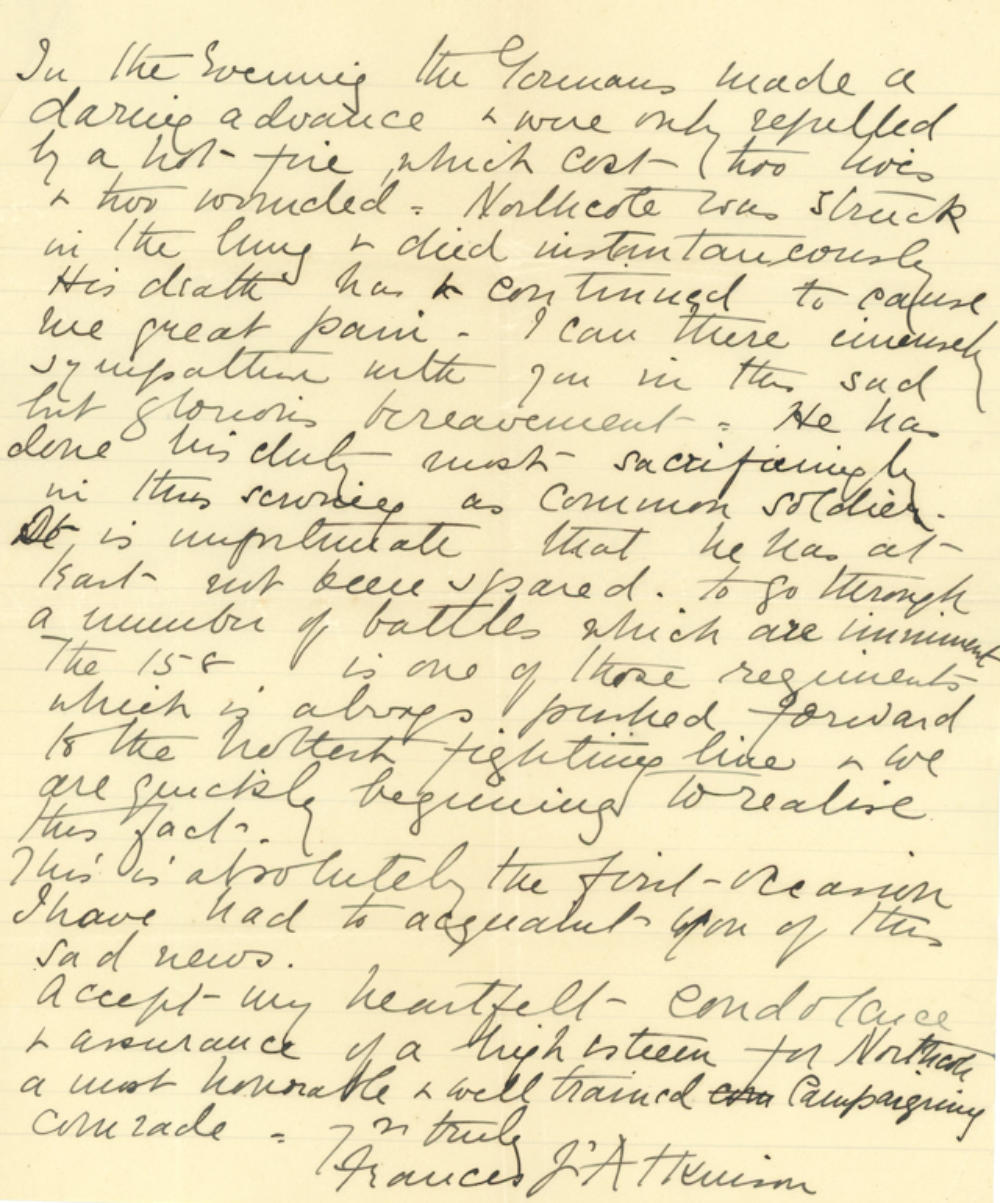 In the Evening the Germans made a
daring advance & were only repelled
by a hot fire, which cost two lives
& two wounded = Northcote was struck
in the lung & died instantaneously
His death has & continued to cause
me great pain - I can there
sympathise with you in this sad
but glorious bereavement = He has
done his duty most sacrifiingly
in thus serving as common soldier.
It is unfortunate that he has at
least not been spared. to go through
a number of battles which are imminent
The 158 is one of those regiments
which is always pushed forward
to the hottest fighting line & we
are quickly beginning to realise
this fact.
This is absolutely the first occasion
I have had to acquaint you of this
sad news.
Accept my heartfelt condolance
& assurance of a high esteem for Northcote
a most honorable & well trained com Campaigning
comrade = yrs truly
Frances J. Atkinson